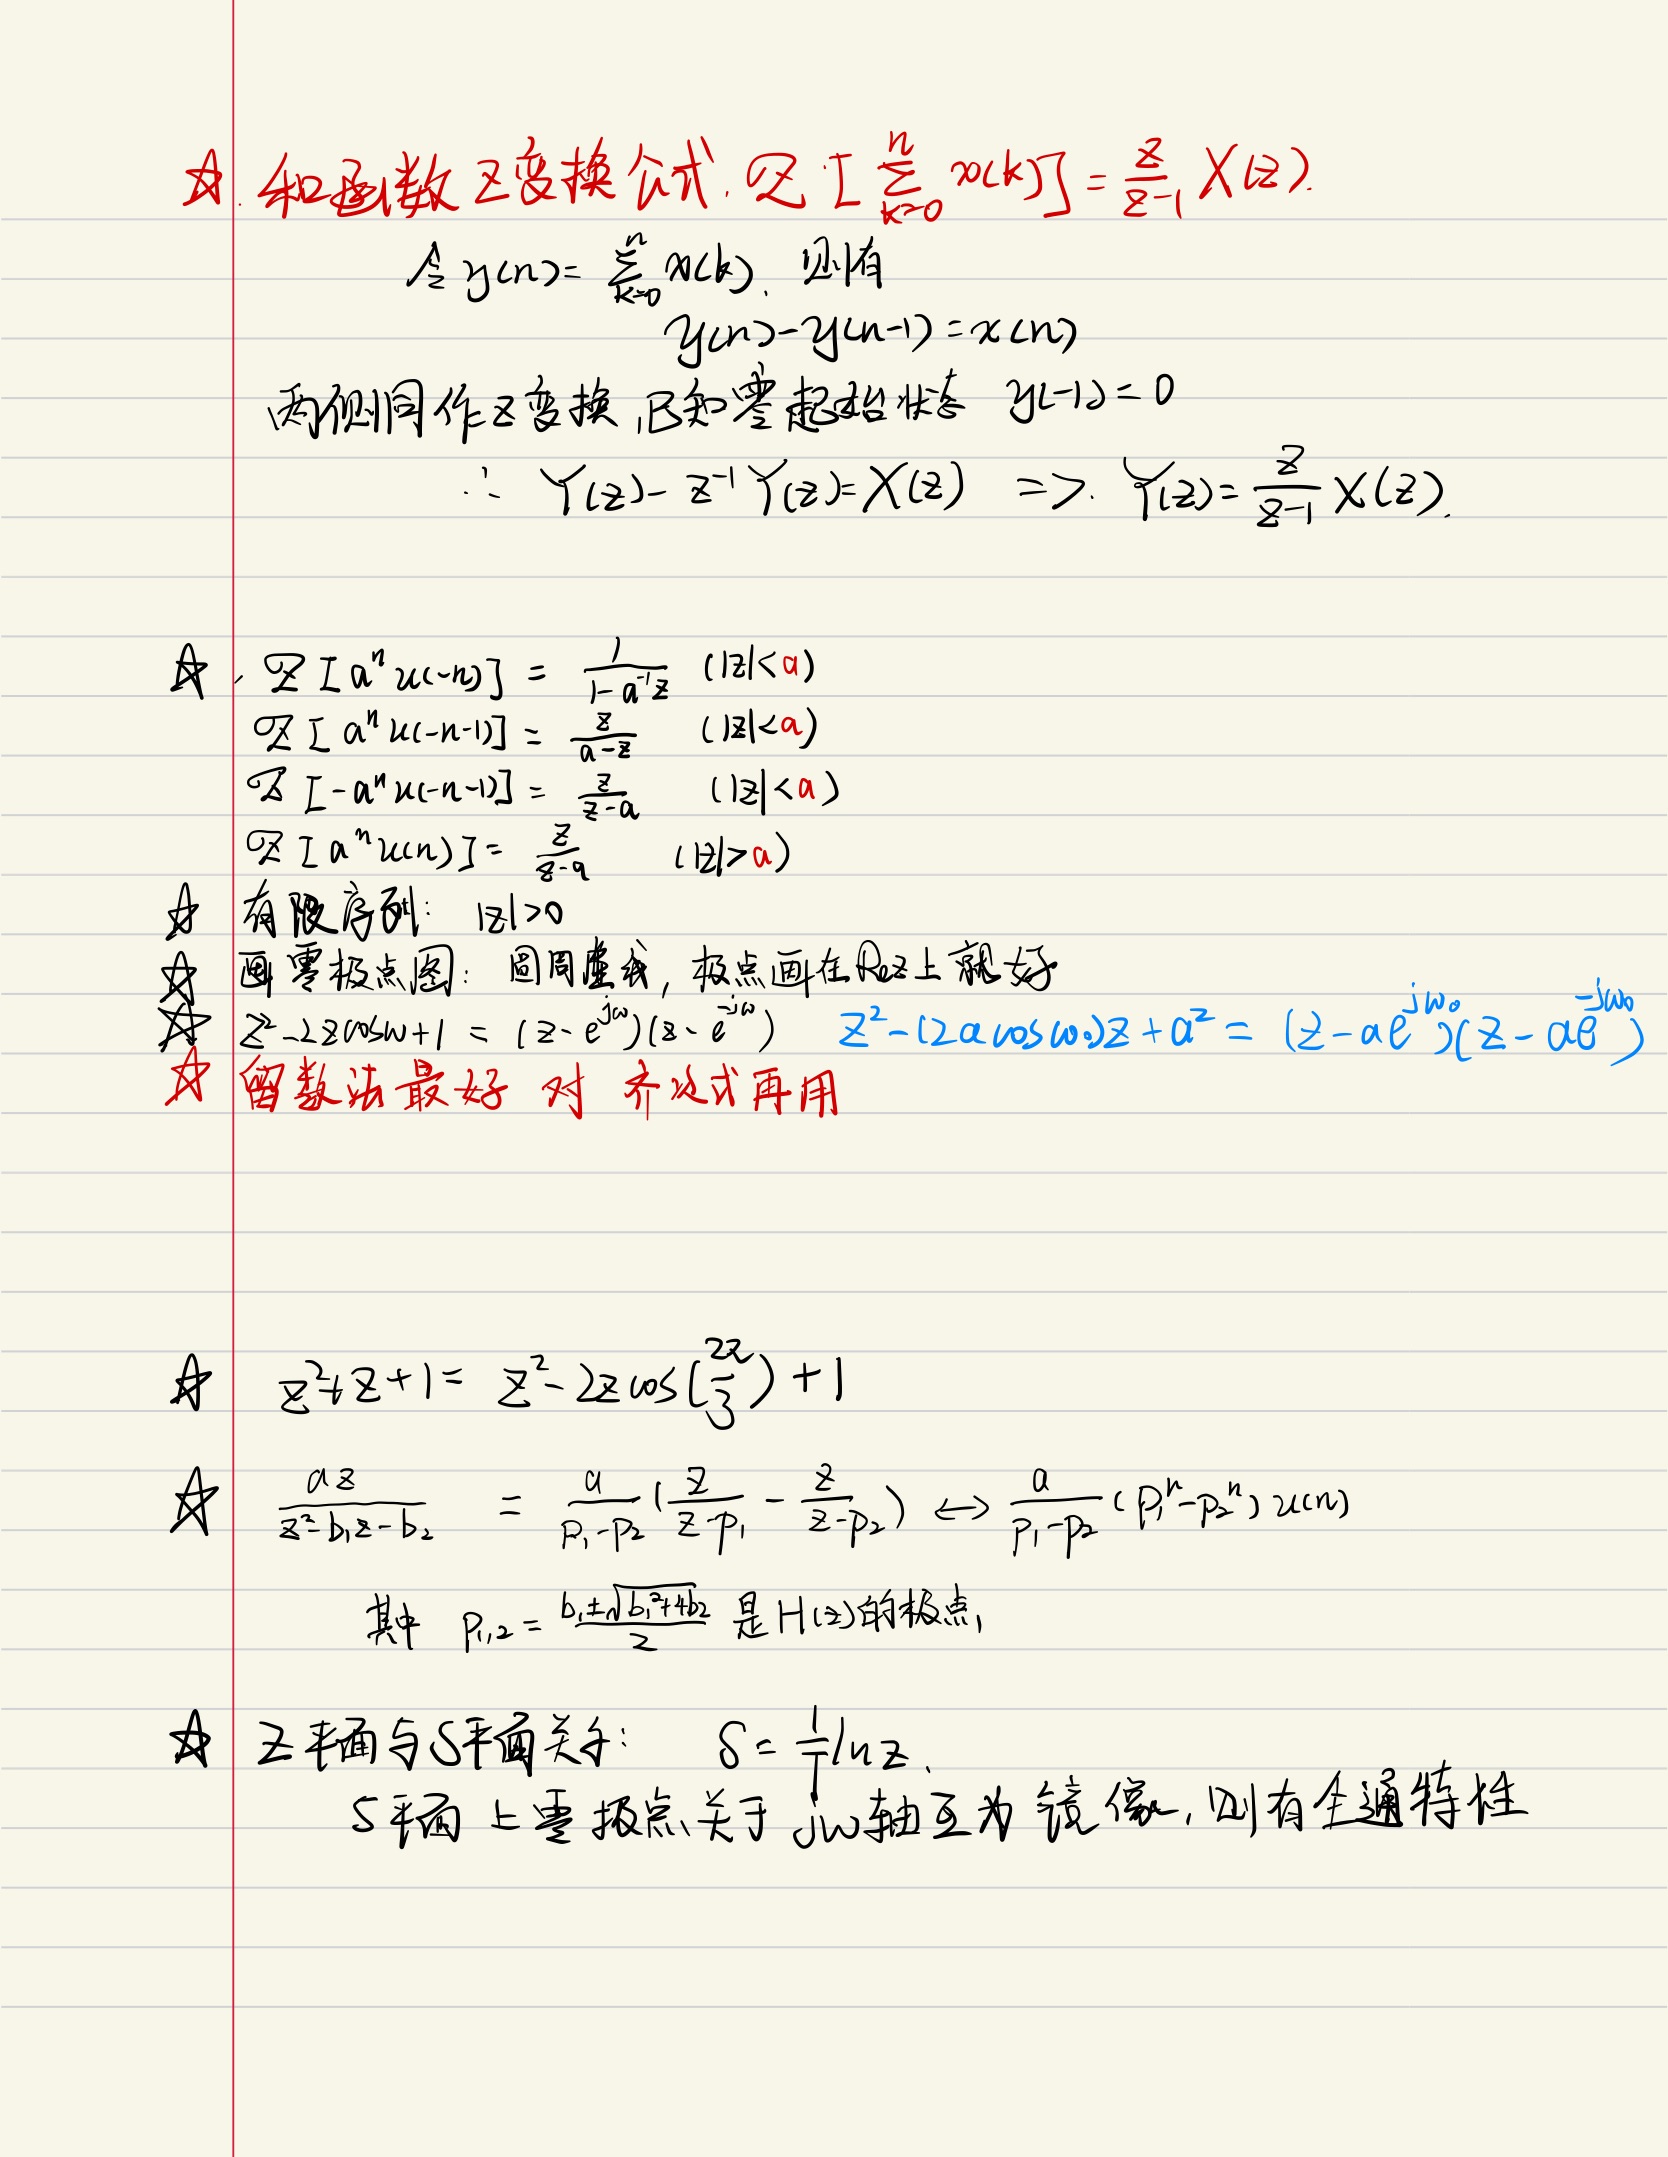 ☆. 和函数Z变换公式. Z[∑_{k=0}^{n} x(k)] = \frac{z}{z-1} X(z).
令 y(n)= ∑_{k=0}^{n} x(k). 则有
y(n)-y(n-1)=x(n)
两侧同作Z变换,已知零起始状态 y(-1)=0
∴ Y(z)- z^{-1}Y(z)=X(z) => Y(z)= \frac{z}{z-1} X(z).
☆. Z[a^n u(-n)] = \frac{1}{1-a^{-1}z} (|z|<a)
Z[a^n u(-n-1)] = \frac{z}{a-z} (|z|<a)
Z[-a^n u(-n-1)] = \frac{z}{z-a} (|z|<a)
Z[a^n u(n)] = \frac{z}{z-a} (|z|>a)
☆ 有限序列: |z|>0
☆ 画零极点图: 圆周虚线, 极点画在Rez上就好
☆ z²-2zcosω+1 = (z-e^{jω})(z-e^{-jω}) z²-(2acosω₀)z+a² = (z-ae^{jω₀})(z-ae^{-jω₀})
☆ 留数法最好 对 齐次式再用
☆ z²+z+1= z²-2zcos(\frac{2π}{3})+1
☆ \frac{az}{z²-b₁z-b₂} = \frac{a}{p₁-p₂}(\frac{z}{z-p₁} - \frac{z}{z-p₂}) ↔ \frac{a}{p₁-p₂}(p₁^n-p₂^n)u(n)
其中 p_{1,2}= \frac{b₁±√{b₁²+4b₂}}{2} 是H(z)的极点,
☆ Z平面与S平面关于: S= \frac{1}{T} ln z.
S平面上零极点关于jω轴互为镜像,则有全通特性